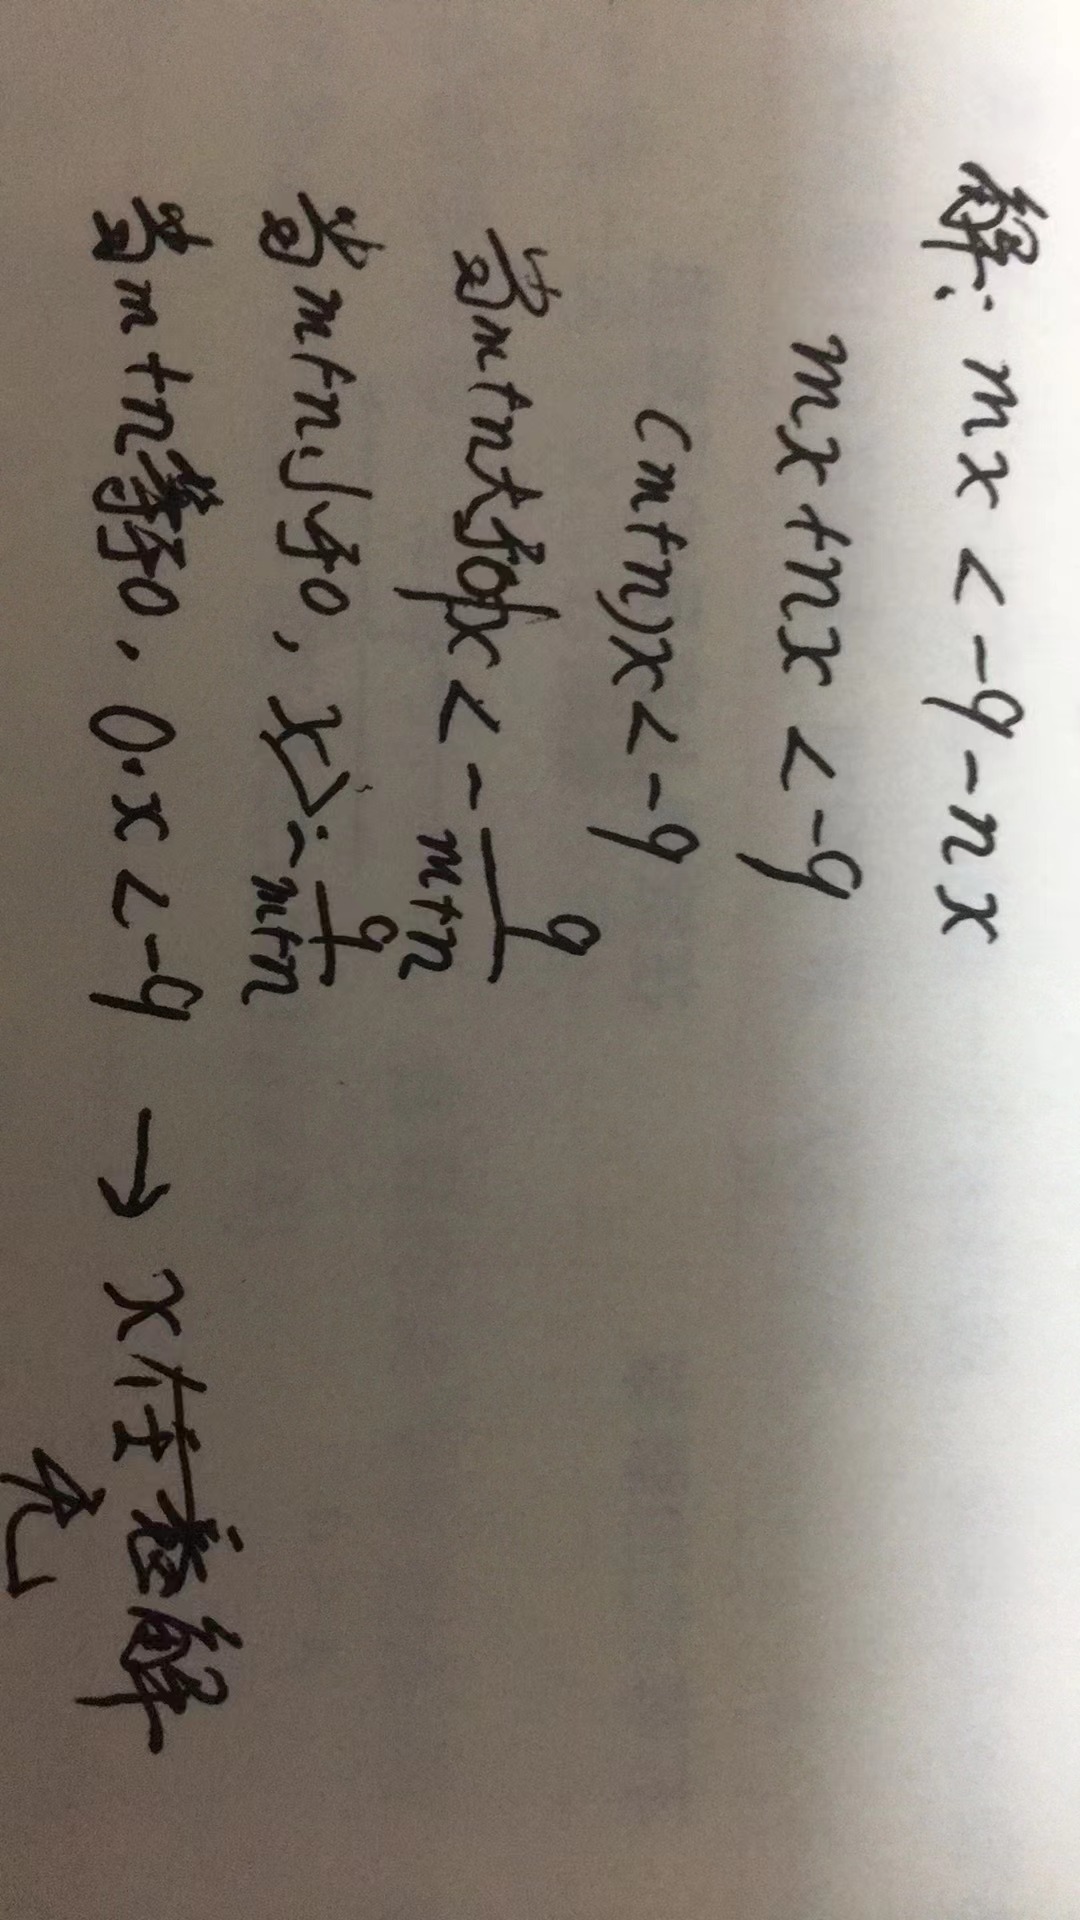 解: mx < -9 - nx
mx + nx < -9
(m+n)x < -9
当m+n大于0时x < - 9/(m+n)
当m+n小于0, x > - 9/(m+n)
当m+n等于0, 0·x < -9 → x 任意解
无